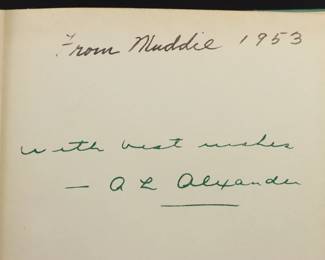 From Muddie 1953
with best wishes
— A L Alexander